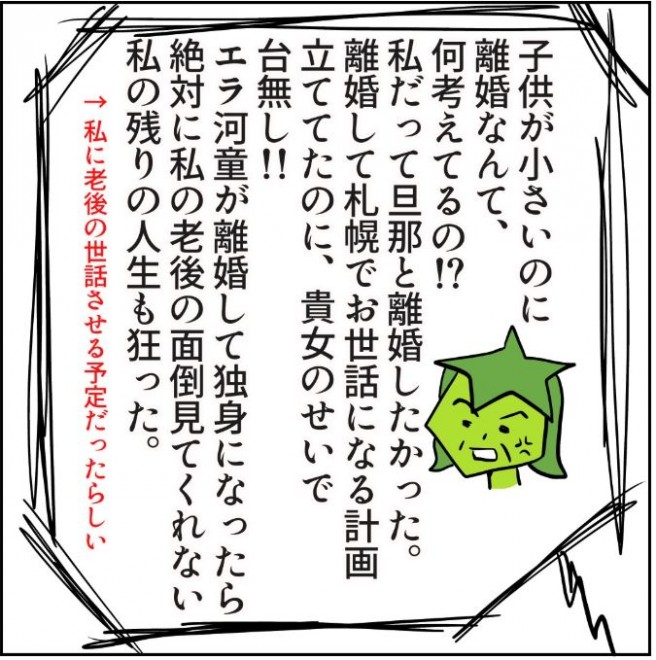 子供が小さいのに
離婚なんて、
何考えてるの!?
私だって旦那と離婚したかった。
離婚して札幌でお世話になる計画
立ててたのに、貴女のせいで
台無し!!
エラ河童が離婚して独身になったら
絶対に私の老後の面倒見てくれない
私の残りの人生も狂った。
→私に老後の世話させる予定だったらしい